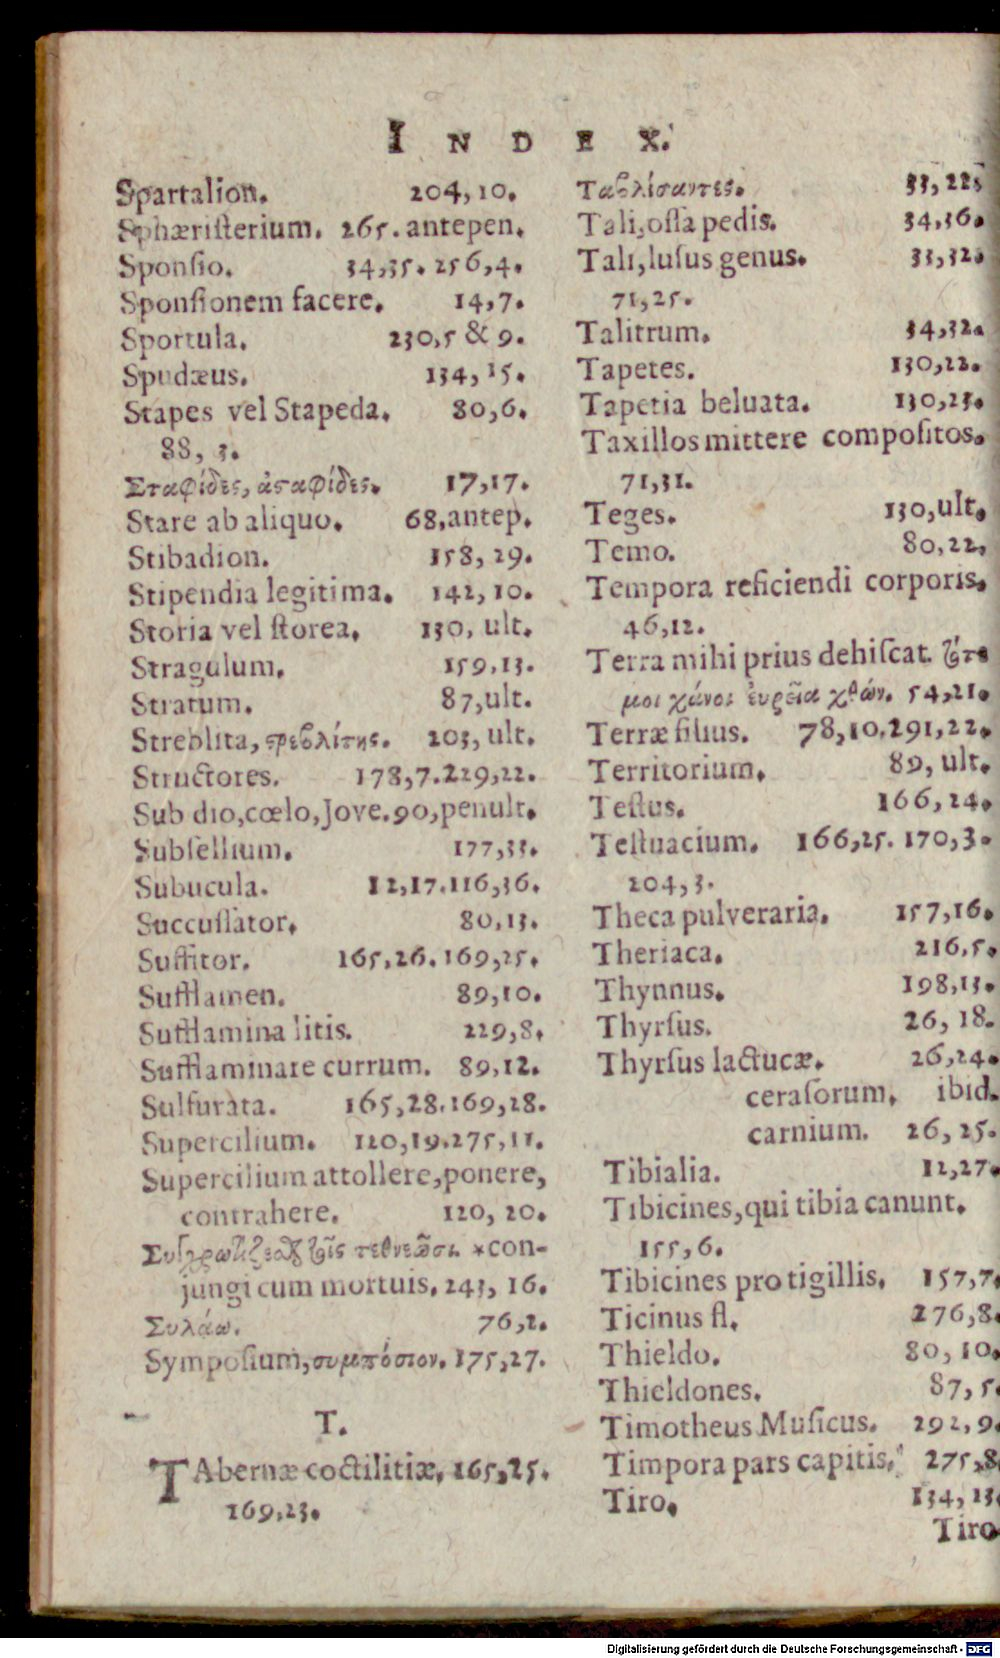 INDEX.
Spartalion. 204,10.
Sphæristerium. 265. antepen.
Sponsio. 34,35. 256,4.
Sponsionem facere. 14,7.
Sportula. 230,5 & 9.
Spudæus. 134,15.
Stapes vel Stapeda. 80,6.
88, 3.
Σταφίδες, ἀσταφίδες. 17,17.
Stare ab aliquo. 68,antep.
Stibadion. 158, 29.
Stipendia legitima. 142, 10.
Storia vel storea. 130, ult.
Stragulum. 159,13.
Stratum. 87,ult.
Streblita, στρεβλίτης. 203, ult.
Structores. 178,7.229,22.
Sub dio,cœlo,Jove.90,penult.
Subsellium. 177,33.
Subucula. 12,17.116,36.
Succussator. 80,13.
Suffitor. 165,26.169,25.
Sufflamen. 89,10.
Sufflamina litis. 229,8.
Sufflaminare currum. 89,12.
Sulfurata. 165,28.169,28.
Supercilium. 120,19.275,11.
Supercilium attollere,ponere,
contrahere. 120, 20.
τοῖς τεθνεῶσι. *con-
jungi cum mortuis. 243, 16.
Συλάω. 76,2.
Symposium,συμπόσιον. 175,27.
T.
TAbernæ coctilitiæ. 165,25.
169,23.
Ταβλίσαντες. 33,22.
Tali,ossa pedis. 34,36.
Tali,lusus genus. 33,32.
71,25.
Talitrum. 34,32.
Tapetes. 130,22.
Tapetia beluata. 130,23.
Taxillos mittere compositos.
71,31.
Teges. 130,ult.
Temo. 80,22.
Tempora reficiendi corporis.
46,12.
Terra mihi prius dehiscat. τότε
μοι χάνοι εὐρεῖα χθών. 54,21.
Terræ filius. 78,10.291,22.
Territorium. 89, ult.
Testus. 166,24.
Testuacium. 166,25. 170,3.
204,3.
Theca pulveraria. 157,16.
Theriaca. 216,5.
Thynnus. 198,13.
Thyrsus. 26, 18.
Thyrsus lactucæ. 26,24.
cerasorum. ibid.
carnium. 26, 25.
Tibialia. 12,27.
Tibicines,qui tibia canunt.
155,6.
Tibicines pro tigillis. 157,7.
Ticinus fl. 276,8.
Thieldo. 80, 10.
Thieldones. 87,5.
Timotheus Musicus. 292,9.
Timpora pars capitis. 275,8.
Tiro. 134,13.
Tiro
Digitalisierung gefördert durch die Deutsche Forschungsgemeinschaft - DFG